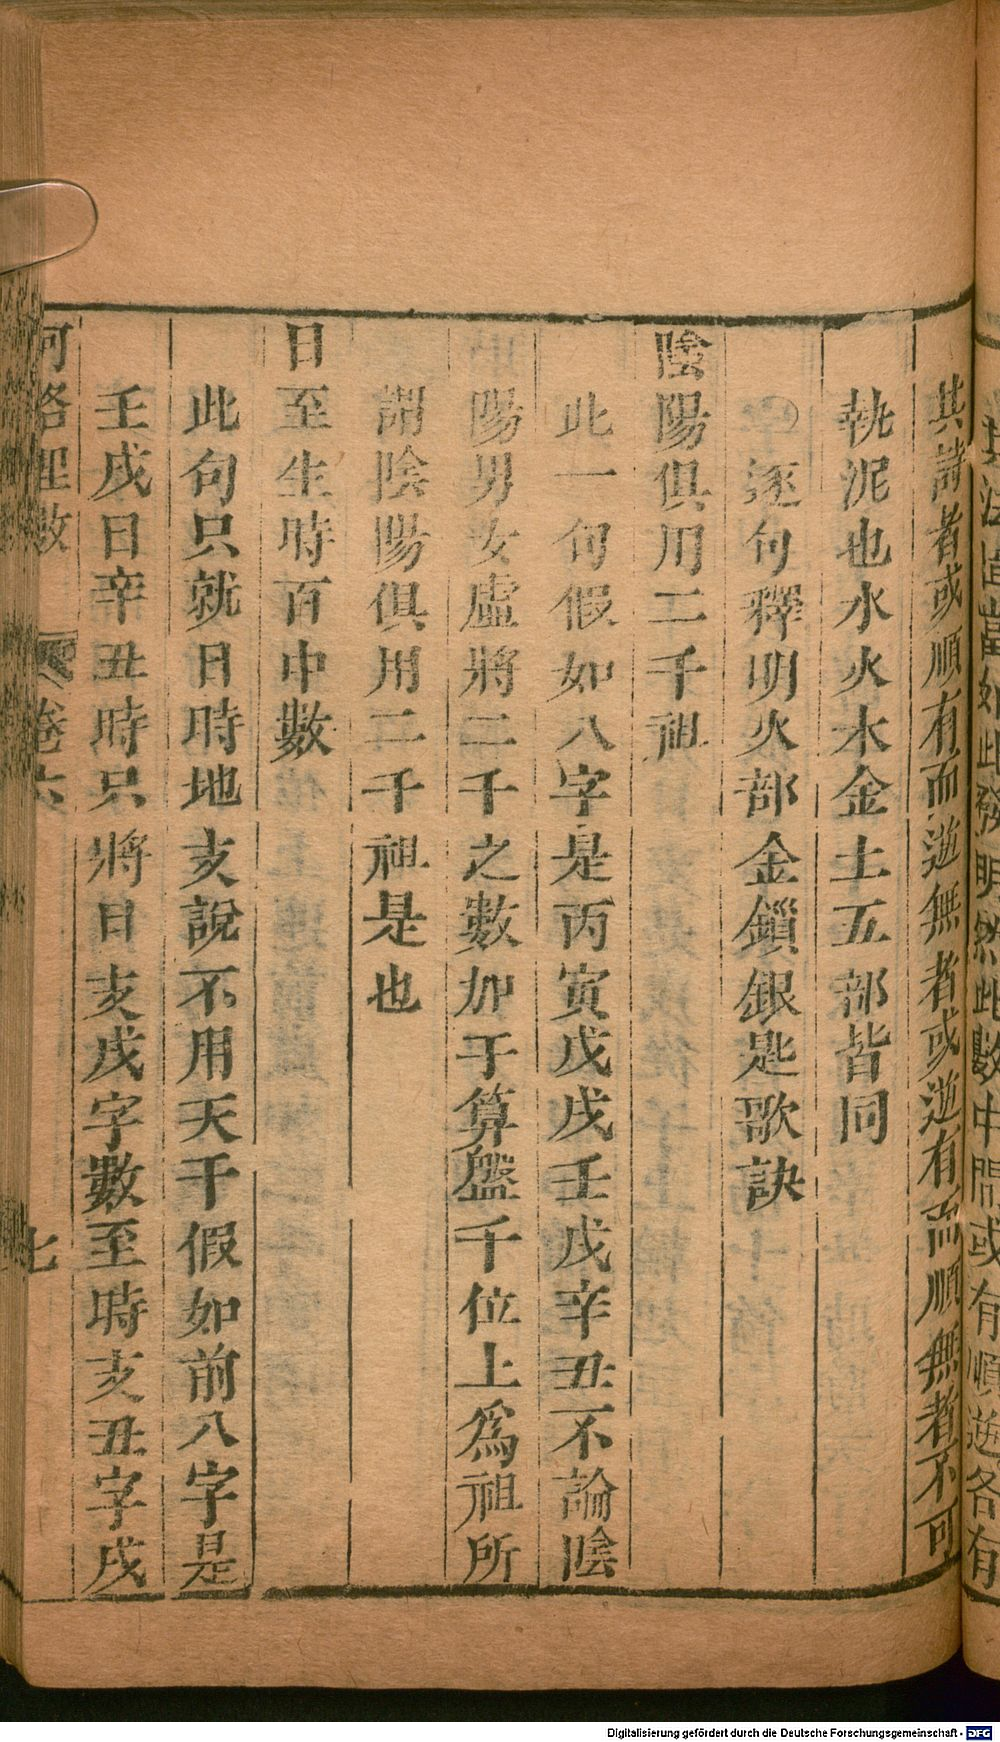 其法固當如此發明然此數中間或有順逆各有
其詩者或順有而逆無者或逆有而順無者不可
執泥也水火木金土五部皆同
○逐句釋明火部金鎖銀匙歌訣
陰陽俱用二千祖
此一句假如八字是丙寅戊戌壬戌辛丑不論陰
陽男女虛將二千之數加于算盤千位上為祖所
謂陰陽俱用二千祖是也
日至生時百中數
此句只就日時地支說不用天干假如前八字是
壬戌日辛丑時只將日支戌字數至時支丑字戌
河洛理數 卷六 七
Digitalisierung gefördert durch die Deutsche Forschungsgemeinschaft - DFG